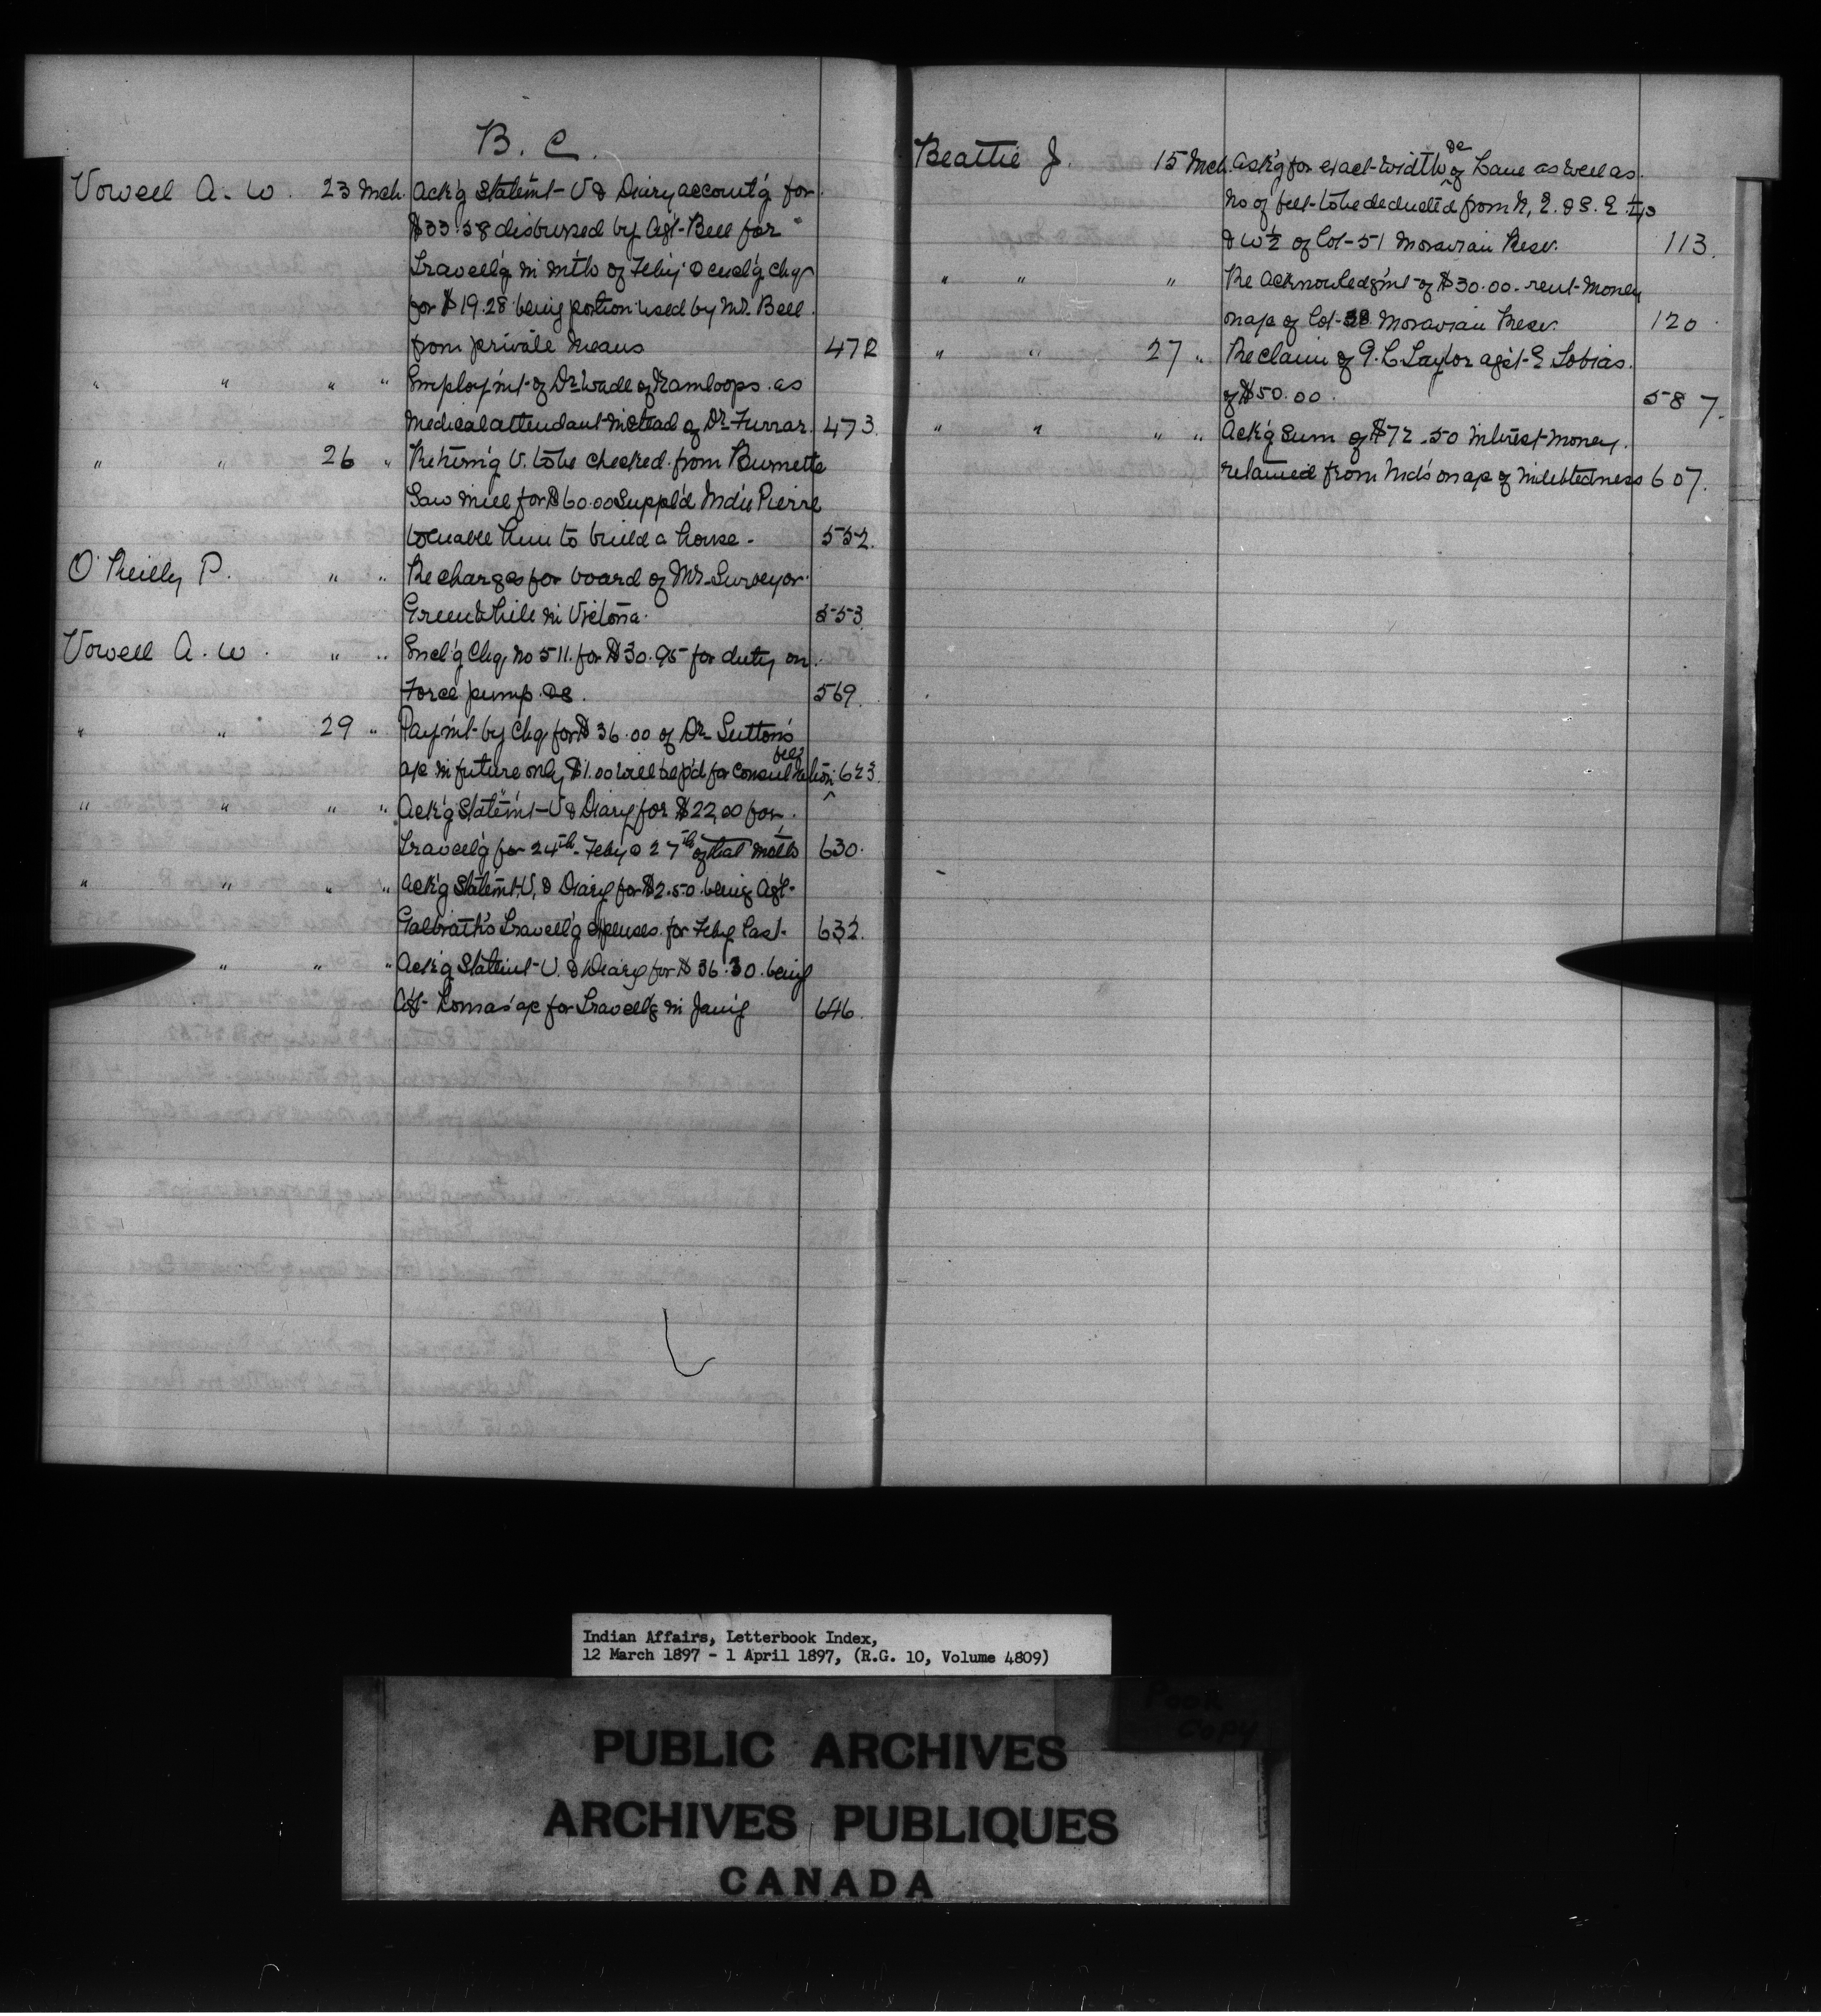 B. C.
Vowell A. W. 23 Mch. Ack'g Statem't V & Diary account'g for
$33.58 disbursed by Ag't Bell for
Travell'g in m'th of Feby & encl'g chq
for $19.28 being portion used by Mr. Bell
from private means 472
" " " " Employm't of Dr. Wade of Kamloops as
Medical attendant instead of Dr. Furrar. 473.
" " 26 " Return'g V. to be checked from Burnette
Saw Mill for $60.00 Suppl'd Ind'n Pierre
to enable him to build a house. 552.
O'Reilly P. " " Re charges for board of Mr. Surveyor
Green while in Victoria. 553
Vowell A. W. " " Encl'g Chq. No 511. for $30.95 for duty on
Force pump &c. 569.
" " 29 " Paym't by Chq for $36.00 of Dr. Sutton's
a/c in future only $1.00 will be p'd for consultation fees 623.
" " " " Ack'g Statem't V & Diary for $22.00 for
Travell'g for 24th Feby @ 27th of that month 630.
" " " " Ack'g Statem't, V, & Diary for $2.50 being Ag't
Galbraith's Travell'g expenses for Feby last. 632.
" " " Ack'g Statem't V. & Diary for $36.30 being
Ag't Lomas' a/c for Travell'g in Jan'y 646.
Beattie J. 15 Mch. Ask'g for exact width &c of Lane as well as
No of feet to be deducted from N, E. & S. E. 1/4s
& W 1/2 of Lot 51 Moravian Reser. 113.
" " " Re Acknowledgm't of $30.00 rent money
on a/c of Lot Moravian Reser. 120.
" " 27 " Re claim of G. L. Taylor ag'st E Tobias.
of $50.00. 587.
" " " " Ack'g Sum of $72.50 interest money.
retained from Ind's on a/c of indebtedness 607.
Indian Affairs, Letterbook Index,
12 March 1897 - 1 April 1897, (R.G. 10, Volume 4809)
Poor
Copy
PUBLIC ARCHIVES
ARCHIVES PUBLIQUES
CANADA